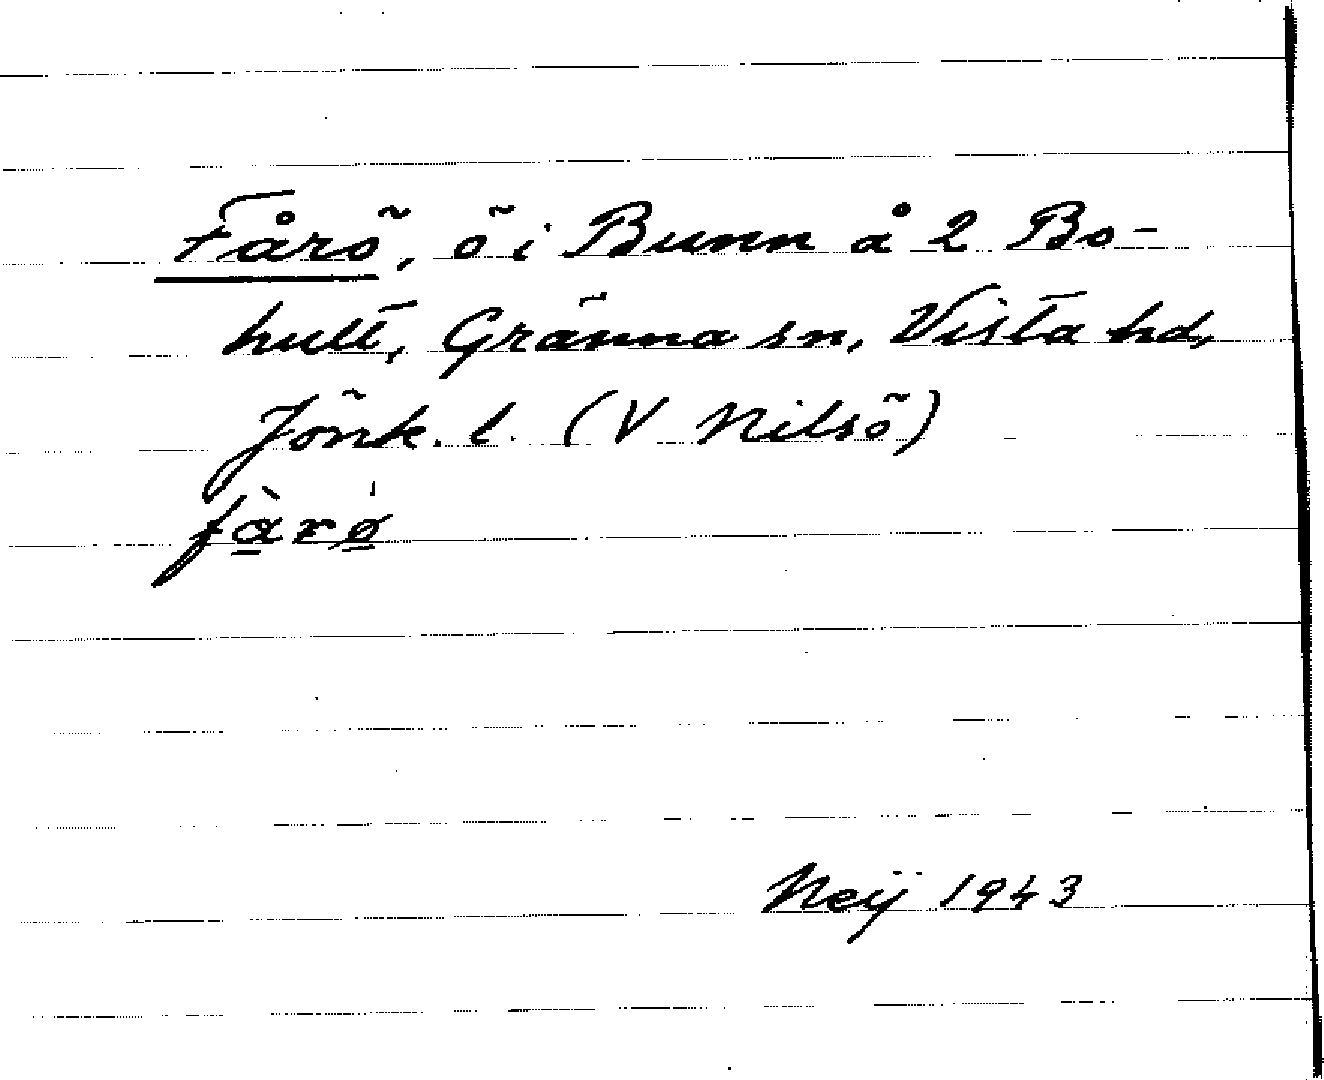 Fårö, ö i Bunn å 2 Bo-
hult, Gränna sn, Vista hd,
Jönk. l. (V Nilsö)
fàrø
Neij 1943